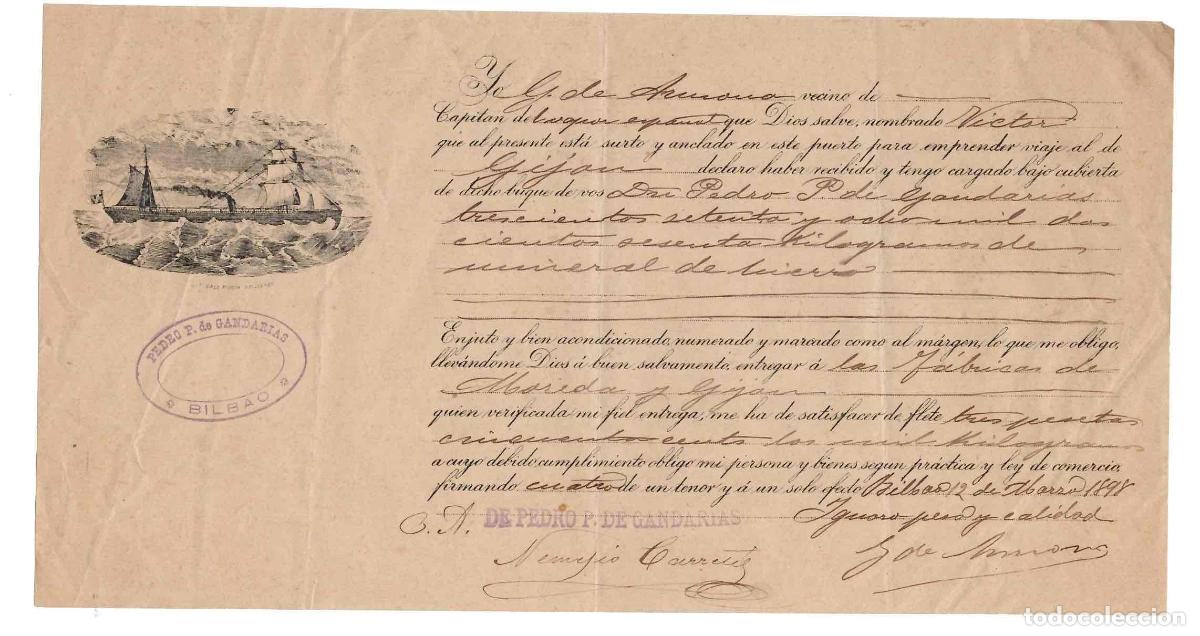 Yo G. de Armona vecino de
Capitan del vapor español que Dios salve, nombrado Victor
que al presente está surto y anclado en este puerto para emprender viaje al de
Gijon declaro haber recibido y tengo cargado bajo cubierta
de dicho buque de vos Dn Pedro P. de Gandarias
trescientos setenta y ocho mil dos
cientos sesenta Kilogramos de
mineral de hierro
Enjuto y bien acondicionado, numerado y marcado como al márgen, lo que me obligo,
llevándome Dios á buen salvamento, entregar á las Fábricas de
Moreda y Gijon
quien verificada mi fiel entrega, me ha de satisfacer de flete tres pesetas
cincuenta cents los mil Kilogramos
a cuyo debido cumplimiento obligo mi persona y bienes segun práctica y ley de comercio,
firmando cuatro de un tenor y á un solo efecto Bilbao 12 de Marzo 1898
Ignoro peso y calidad
O. A. DE PEDRO P. DE GANDARIAS
Nemesio G. de Armona
PEDRO P. de GANDARIAS
BILBAO
todocoleccion